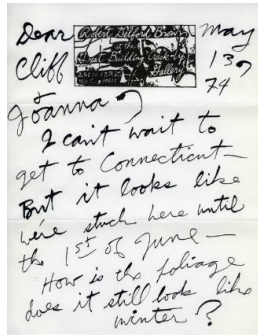 Dear
Cliff
Robert Delford Brown
Great Building Crack-Up
Gallery
May
13,
74
Joanna,
I can't wait to
get to Connecticut—
But it looks like
were stuck here until
the 1st of June—
How is the foliage
does it still look like
winter?